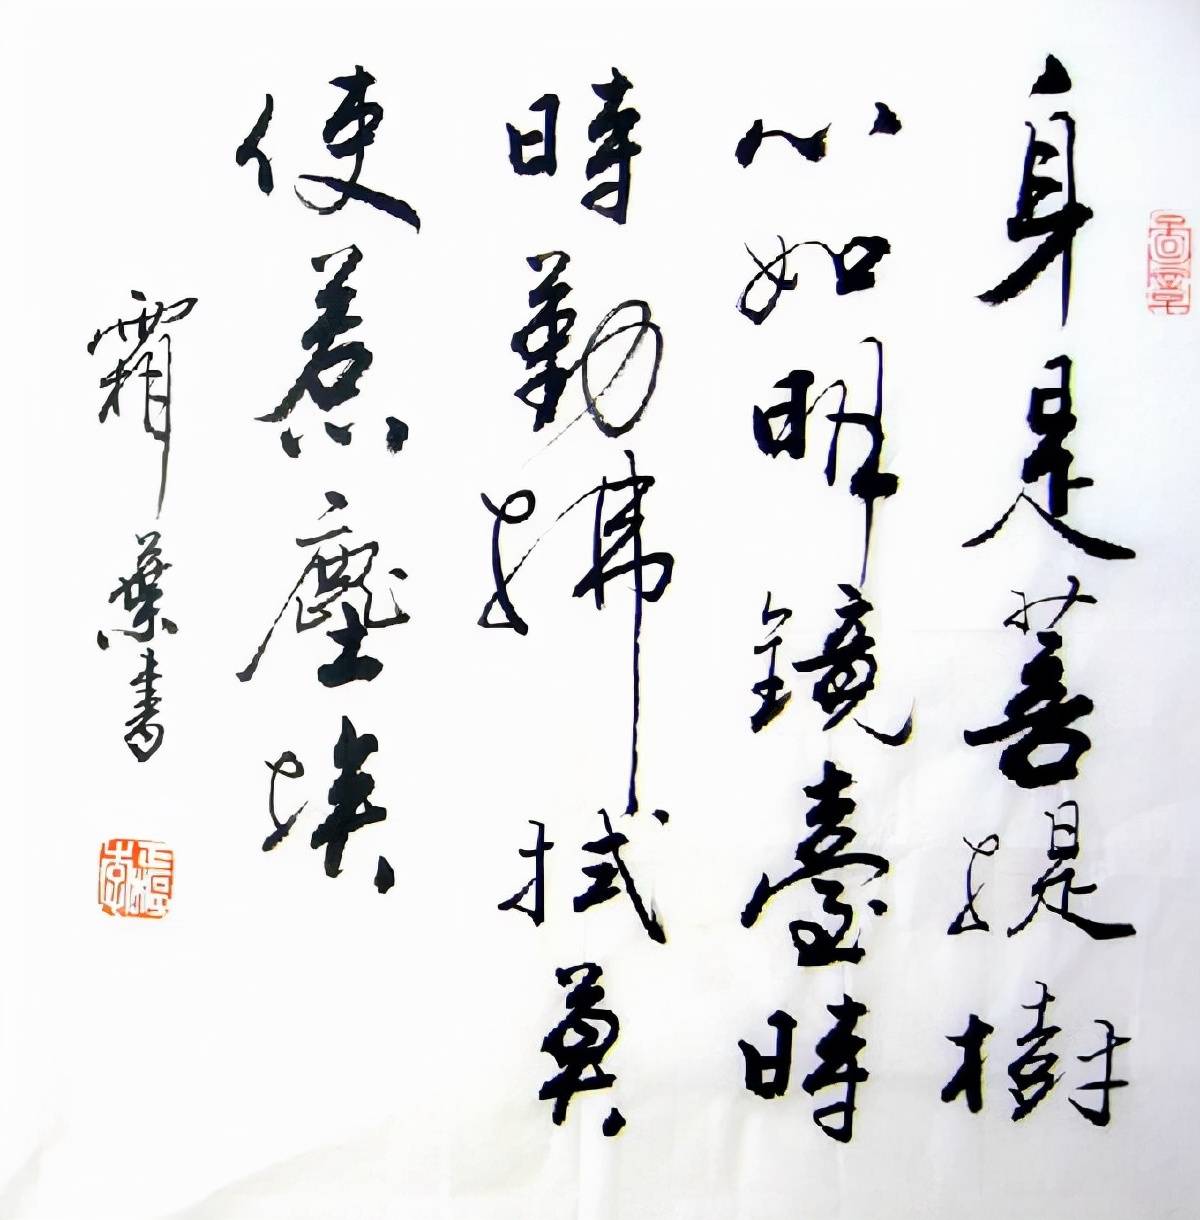 身是菩提樹
心如明鏡臺時
時勤拂拭莫
使惹塵埃
霜葉書